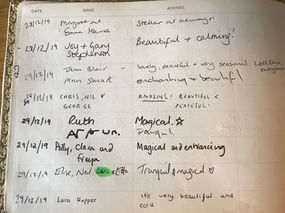 DATE NAME ADDRESS
29/12/19 Margaret and Stellar as always
Emma Maurice
29/12/19 Joy + Gary Beautiful + calming!
Stephenson
29/12/19 Jean Blair - lovely, peaceful + very seasonal Well Done everyone
Ann Stuart enchanting + beautiful
29/12/19 CHRIS, NIC & AMAZING! BEAUTIFUL &
GEORGE PLAYFUL!
29/12/19 Ruth Magical ☆
Tranquil
29/12/19 Polly, Clara and Magical and entrancing
Freya
29/12/19 Elsie, Ned Tranquil & magical ♡
29/12/19 Lara Hopper it's very beautiful and
cold